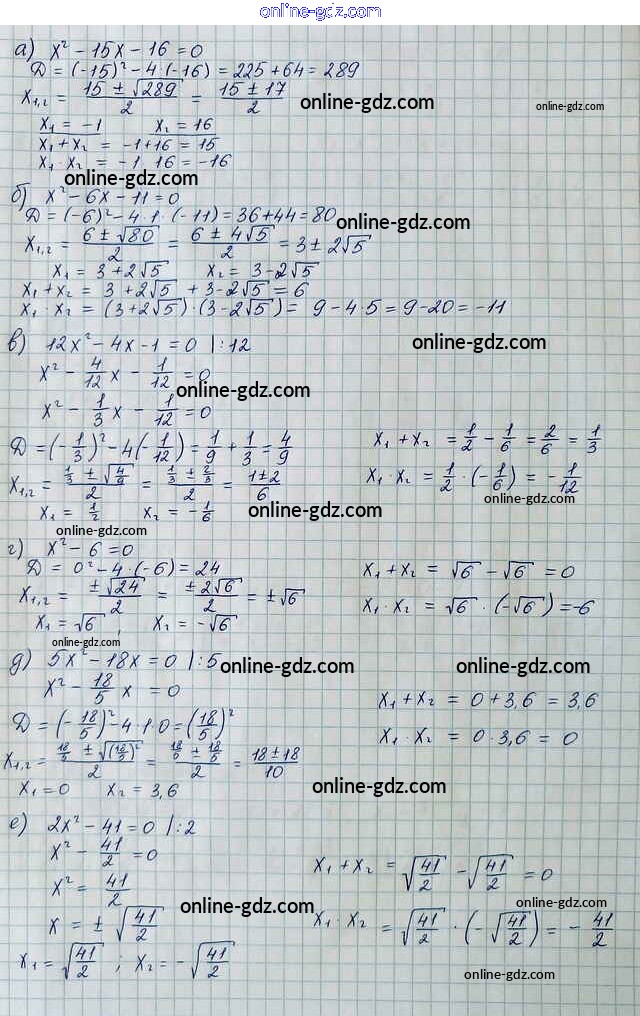 online-gdz.com
а) x² - 15x - 16 = 0
D = (-15)² - 4·(-16) = 225 + 64 = 289
x₁,₂ = (15 ± √289)/2 = (15 ± 17)/2
online-gdz.com
online-gdz.com
x₁ = -1 x₂ = 16
x₁ + x₂ = -1 + 16 = 15
x₁ · x₂ = -1 · 16 = -16
online-gdz.com
б) x² - 6x - 11 = 0
D = (-6)² - 4·1·(-11) = 36 + 44 = 80
online-gdz.com
x₁,₂ = (6 ± √80)/2 = (6 ± 4√5)/2 = 3 ± 2√5
x₁ = 3 + 2√5 x₂ = 3 - 2√5
x₁ + x₂ = 3 + 2√5 + 3 - 2√5 = 6
x₁ · x₂ = (3 + 2√5)·(3 - 2√5) = 9 - 4·5 = 9 - 20 = -11
в) 12x² - 4x - 1 = 0 |:12
online-gdz.com
x² - 4/12 x - 1/12 = 0
online-gdz.com
x² - 1/3 x - 1/12 = 0
D = (-1/3)² - 4(-1/12) = 1/9 + 1/3 = 4/9
x₁,₂ = (1/3 ± √(4/9))/2 = (1/3 ± 2/3)/2 = (1 ± 2)/6
x₁ = 1/2 x₂ = -1/6
x₁ + x₂ = 1/2 - 1/6 = 2/6 = 1/3
x₁ · x₂ = 1/2 · (-1/6) = -1/12
online-gdz.com
online-gdz.com
online-gdz.com
г) x² - 6 = 0
D = 0² - 4·(-6) = 24
x₁,₂ = ±√24/2 = ±2√6/2 = ±√6
x₁ = √6 ; x₂ = -√6
x₁ + x₂ = √6 - √6 = 0
x₁ · x₂ = √6 · (-√6) = -6
online-gdz.com
д) 5x² - 18x = 0 |:5
online-gdz.com
online-gdz.com
x² - 18/5 x = 0
D = (-18/5)² - 4·1·0 = (18/5)²
x₁,₂ = (18/5 ± √(18/5)²)/2 = (18/5 ± 18/5)/2 = (18 ± 18)/10
x₁ = 0 x₂ = 3,6
x₁ + x₂ = 0 + 3,6 = 3,6
x₁ · x₂ = 0 · 3,6 = 0
online-gdz.com
е) 2x² - 41 = 0 |:2
x² - 41/2 = 0
x² = 41/2
x = ± √(41/2)
x₁ = √(41/2) ; x₂ = -√(41/2)
x₁ + x₂ = √(41/2) - √(41/2) = 0
x₁ · x₂ = √(41/2) · (-√(41/2)) = -41/2
online-gdz.com
online-gdz.com
online-gdz.com